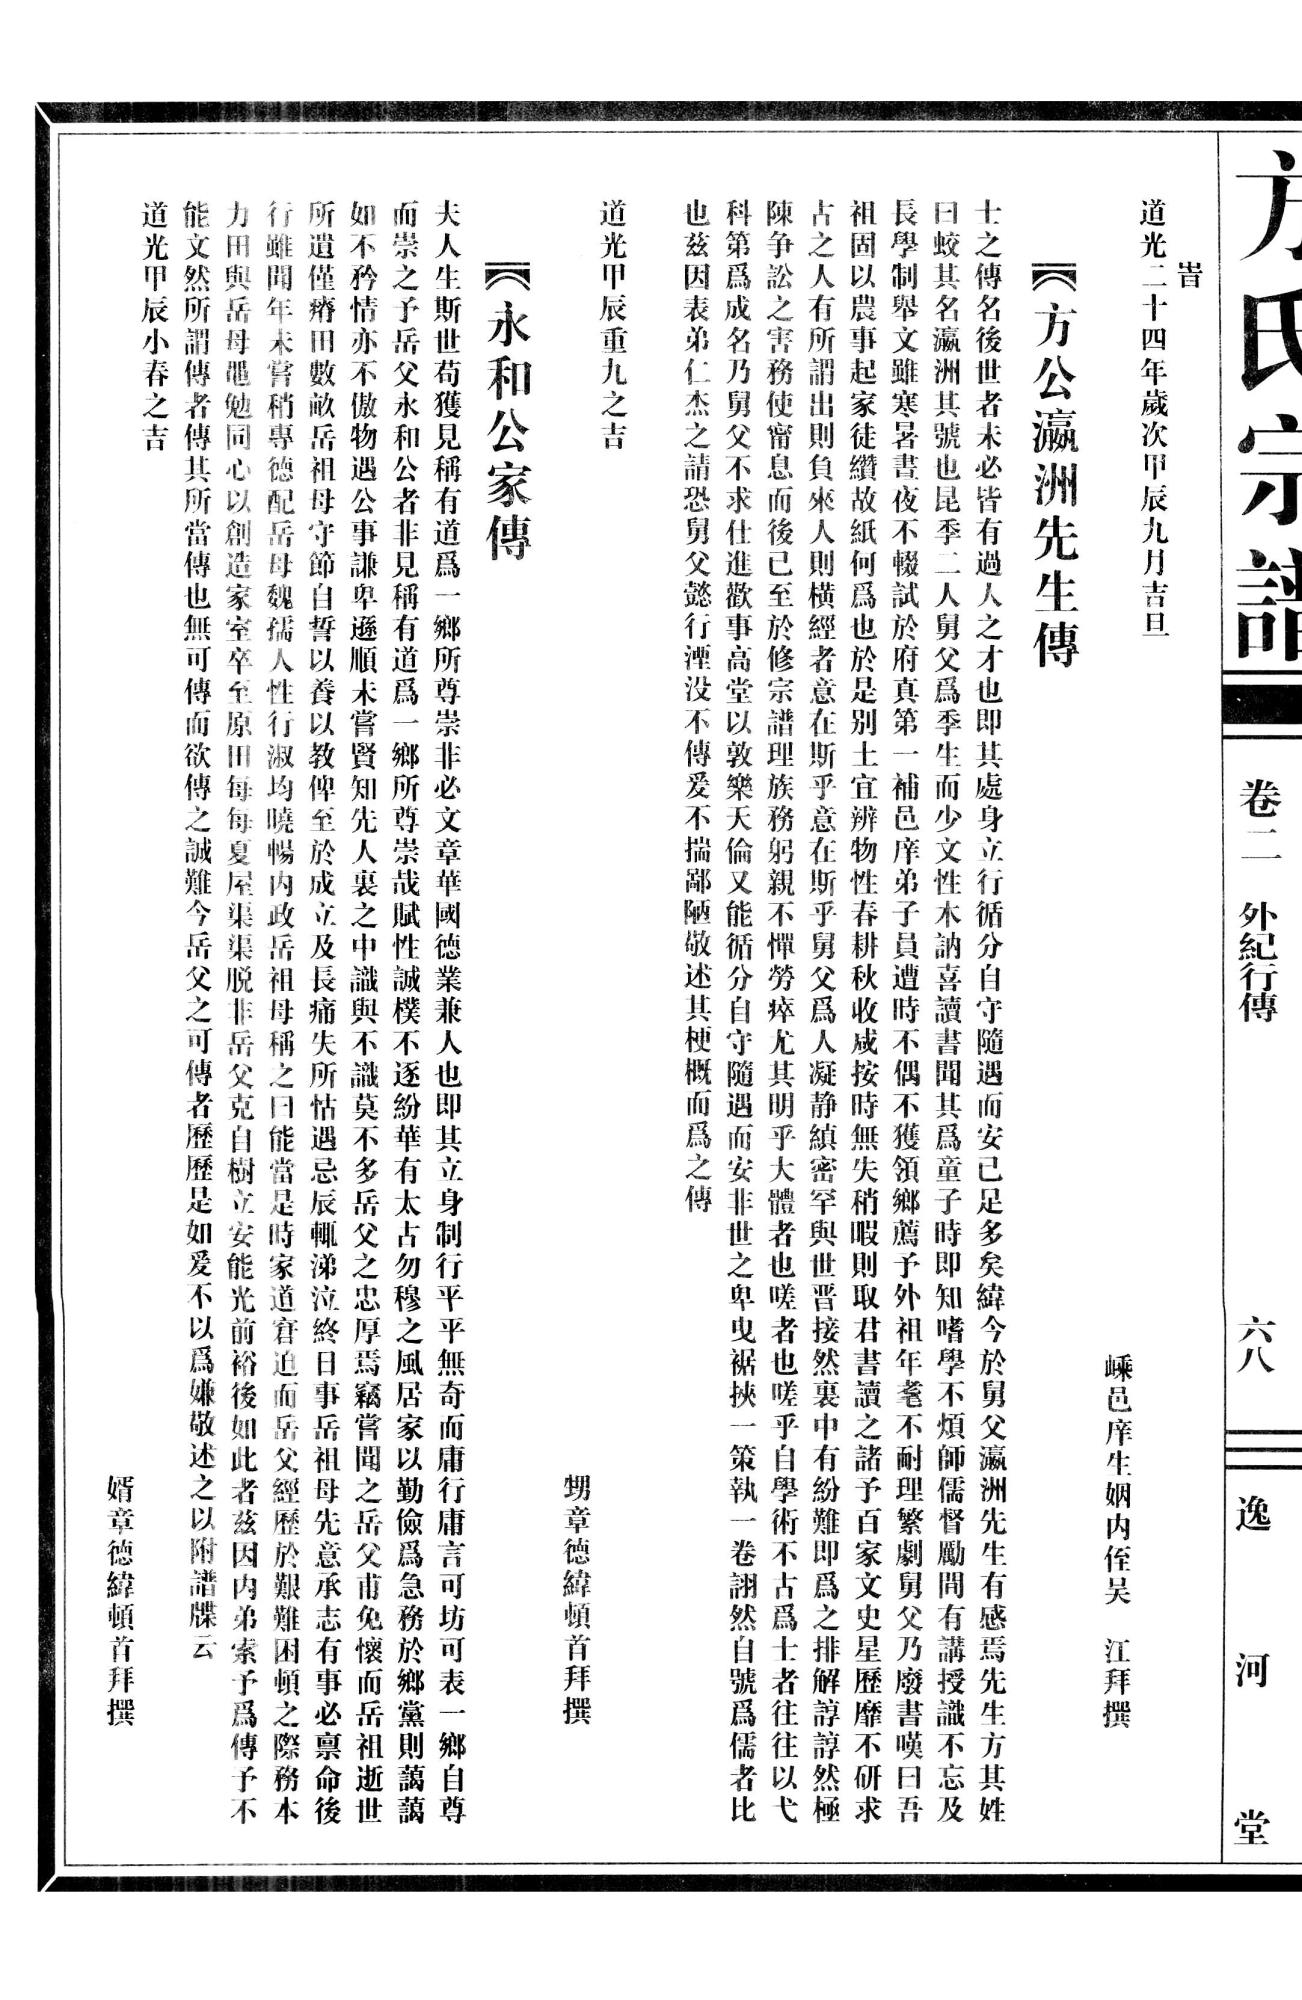 方氏宗譜
卷二 外紀行傳
六八
逸河堂
旹
道光二十四年歲次甲辰九月吉旦
嵊邑庠生姻内侄吴 江拜撰
方公瀛洲先生傳
士之傳名後世者未必皆有過人之才也即其處身立行循分自守隨遇而安已足多矣緯今於舅父瀛洲先生有感焉先生方其姓
曰蛟其名瀛洲其號也昆季二人舅父爲季生而少文性木訥喜讀書聞其爲童子時即知嗜學不煩師儒督勵間有講授識不忘及
長學制舉文雖寒暑晝夜不輟試於府真第一補邑庠弟子員遭時不偶不獲領鄉薦予外祖年耄不耐理繁劇舅父乃廢書嘆曰吾
祖固以農事起家徒纘故紙何爲也於是別土宜辨物性春耕秋收咸按時無失稍暇則取君書讀之諸予百家文史星歷靡不研求
占之人有所謂出則負來人則橫經者意在斯乎意在斯乎舅父爲人凝静縝密罕與世晋接然裏中有紛難即爲之排解諄諄然極
陳争訟之害務使甯息而後已至於修宗譜理族務躬親不憚勞瘁尤其明乎大體者也嗟者也嗟乎自學術不古爲士者往往以弋
科第爲成名乃舅父不求仕進歡事高堂以敦樂天倫又能循分自守隨遇而安非世之卑曳裾挾一策執一卷詡然自號爲儒者比
也兹因表弟仁杰之請恐舅父懿行湮没不傳爰不揣鄙陋敬述其梗概而爲之傳
道光甲辰重九之吉
甥章德緯頓首拜撰
永和公家傳
夫人生斯世苟獲見稱有道爲一鄉所尊崇非必文章華國德業兼人也即其立身制行平平無奇而庸行庸言可坊可表一鄉自尊
而崇之予岳父永和公者非見稱有道爲一鄉所尊崇哉賦性誠樸不逐紛華有太古勿穆之風居家以勤儉爲急務於鄉黨則藹藹
如不矜情亦不傲物遇公事謙卑遜順未嘗賢知先人裏之中識與不識莫不多岳父之忠厚焉竊嘗聞之岳父甫免懷而岳祖逝世
所遺僅瘠田數畝岳祖母守節自誓以養以教俾至於成立及長痛失所怙遇忌辰輒涕泣終日事岳祖母先意承志有事必禀命後
行雖聞年未嘗稍專德配岳母魏孺人性行淑均曉暢内政岳祖母稱之曰能當是時家道窘迫而岳父經歷於艱難困頓之際務本
力田與岳母黽勉同心以創造家室卒至原田每每夏屋渠渠脱非岳父克自樹立安能光前裕後如此者兹因内弟索予爲傳予不
能文然所謂傳者傳其所當傳也無可傳而欲傳之誠難今岳父之可傳者歷歷是如爰不以爲嫌敬述之以附譜牒云
道光甲辰小春之吉
婿章德緯頓首拜撰